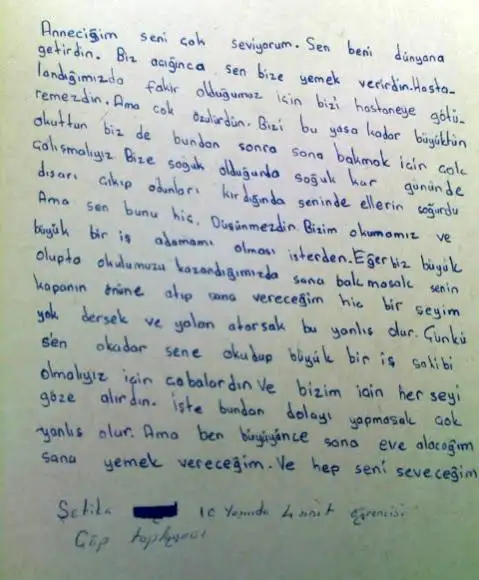 Anneciğim seni çok seviyorum. Sen beni dünyana
getirdin. Biz acığınca sen bize yemek verirdin. Hasta-
landığımızda fakir olduğumuz için bizi hastaneye götü-
remezdin. Ama çok üzülürdün. Bizi bu yaşa kadar büyüktün
okuttun biz de bundan sonra sana bakmak için çok
çalışmalıyız Bize soğuk olduğunda soğuk kar gününde
dışarı çıkıp odunları kırdığında seninde ellerin soğurdu
Ama sen bunu hiç. Düşünmezdin. Bizim okumamız ve
büyük bir iş adamamı olması isterden. Eğer biz büyük
olupta okulumuzu kazandığımızda sana bakmasak senin
kapanın önüne atıp sana vereceğim hiç bir şeyim
yok dersek ve yalan atarsak bu yanlış olur. Çünkü
sen okadar sene okudup büyük bir iş sahibi
olmalıyız için çabalardın Ve bizim için her şeyi
göze alırdın. işte bundan dolayı yapmasak çok
yanlış olur. Ama ben büyüyünce sana eve alacağım
sana yemek vereceğim. Ve hep seni seveceğim
10 Yaşında 4 sınıf öğrencisi
Çöp toplayıcısı